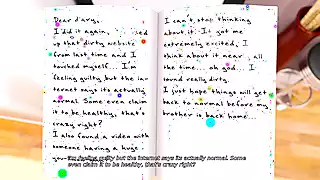 Dear diary,
I did it again, I
up that dirty website
from last time and I
touched myself... I'm
feeling guilty but the in-
ternet says its actually
normal. Some even claim
it to be healthy, that's
crazy right?
I also found a video with
someone having a huge
I can't stop thinking
about it. It got me
extremely excited, I
think about it near all
the time... oh god... I
sound really dirty.
I just hope things will get
back to normal before my
brother is back home.
I'm feeling guilty but the internet says its actually normal. Some
even claim it to be healthy, that's crazy right?